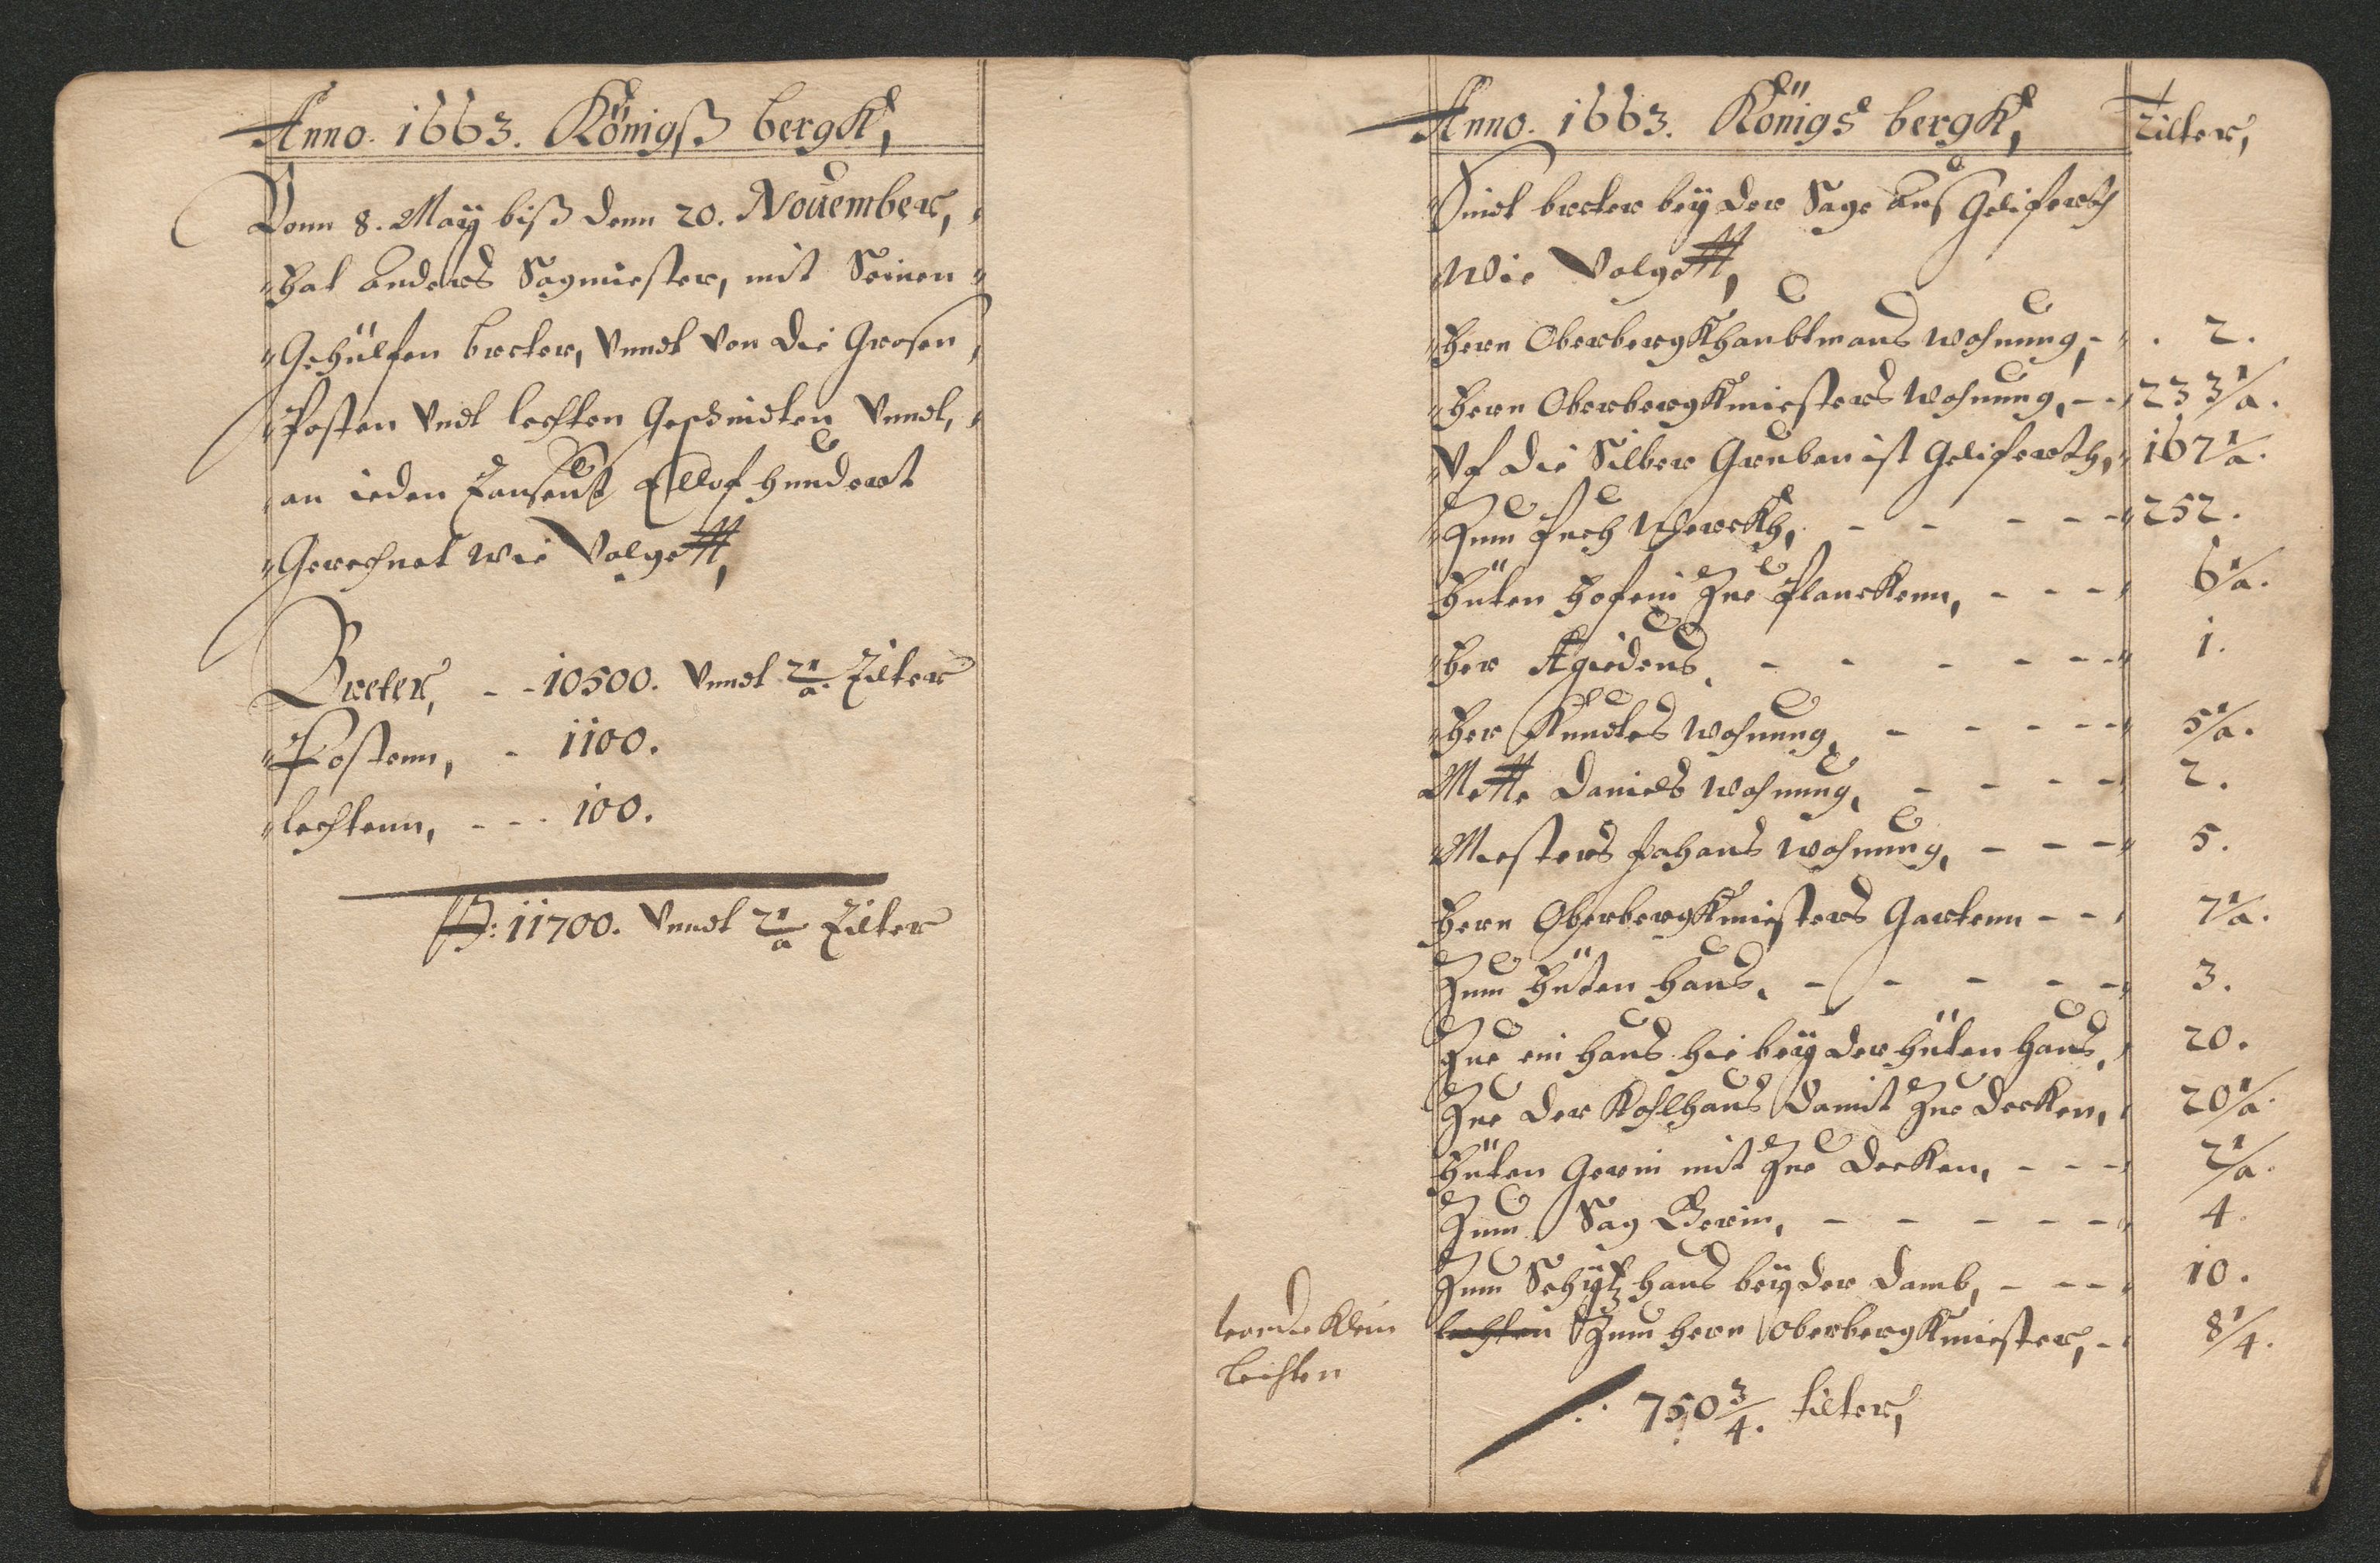 Anno. 1663. Königß bergk,
Vonn 8. Maÿ biß denn 20. November,
hat anders Sagmiester, mit Seinen
Gehülfen breter, Vnndt von die Grosen
Posten Vndt lechten Geschnidten Vnndt,
an ieden tausent Ellof hundert
Gerechnet wie Volgett,
Breter, - - 10500. Vnndt 2 1/a. Zilter
Postenn, - 1100.
lechtenn, - - - 100.
S: 11700. Vnndt 2 1/a Zilter
Anno. 1663. Königs bergk, Tilter,
Sindt breter beÿ der Sage aus Geliferth
Wie Volgett,
Hern Oberbergkhaubtmans wohnung, - 2.
Hern Oberbergkmiesters Wohnung, - - 233 1/a.
Vf die Silber Gruben ist Geliferth, 167 1/a.
Zum Puch Werckh, - - - - - 252.
Hüten hofein Zue Planckenn, - - - 6 1/a.
Her Agiedens, - - - - - - 1.
Her Kundtes Wohnung, - - - - - 5 1/a.
Mette Daniels Wohnung, - - - - 2.
Miesters Johans Wohnung, - - - 5.
Hern Oberbergkmiesters Gartenn - - 7 1/a.
Zum Hüten haus, - - - - - 3.
Zue ein haus hie beÿ der hüten haus, 20.
Zue der Kohlhaus damit Zue decken, 20 1/a.
Hüten Gerin mit Zue decken, - - - 2 1/a.
Zum Sag Gerin, - - - - - 4.
Zum Schÿtz haus beÿ der damb, - - - 10.
lechten Zum hern oberbergkmiester, - 8 1/4.
Klein
lechten
750 3/4. tilter,